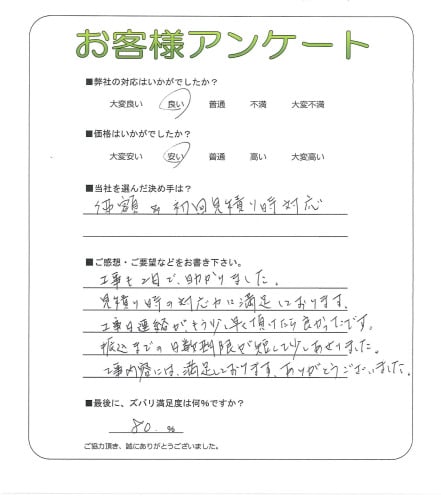 お客様アンケート
■弊社の対応はいかがでしたか？
大変良い 良い 普通 不満 大変不満
■価格はいかがでしたか？
大変安い 安い 普通 高い 大変高い
■当社を選んだ決め手は？
価額 & 初回見積り時対応
■ご感想・ご要望などをお書き下さい。
工事も2日で、助かりました。
見積り時の対応力に満足しております。
工事日連絡がもう少し早く頂けたら良かったです。
振込までの日数制限が短して少しあせりました。
工事内容には、満足しております。ありがとうございました。
■最後に、ズバリ満足度は何％ですか？
80 %
ご協力頂き、誠にありがとうございました。